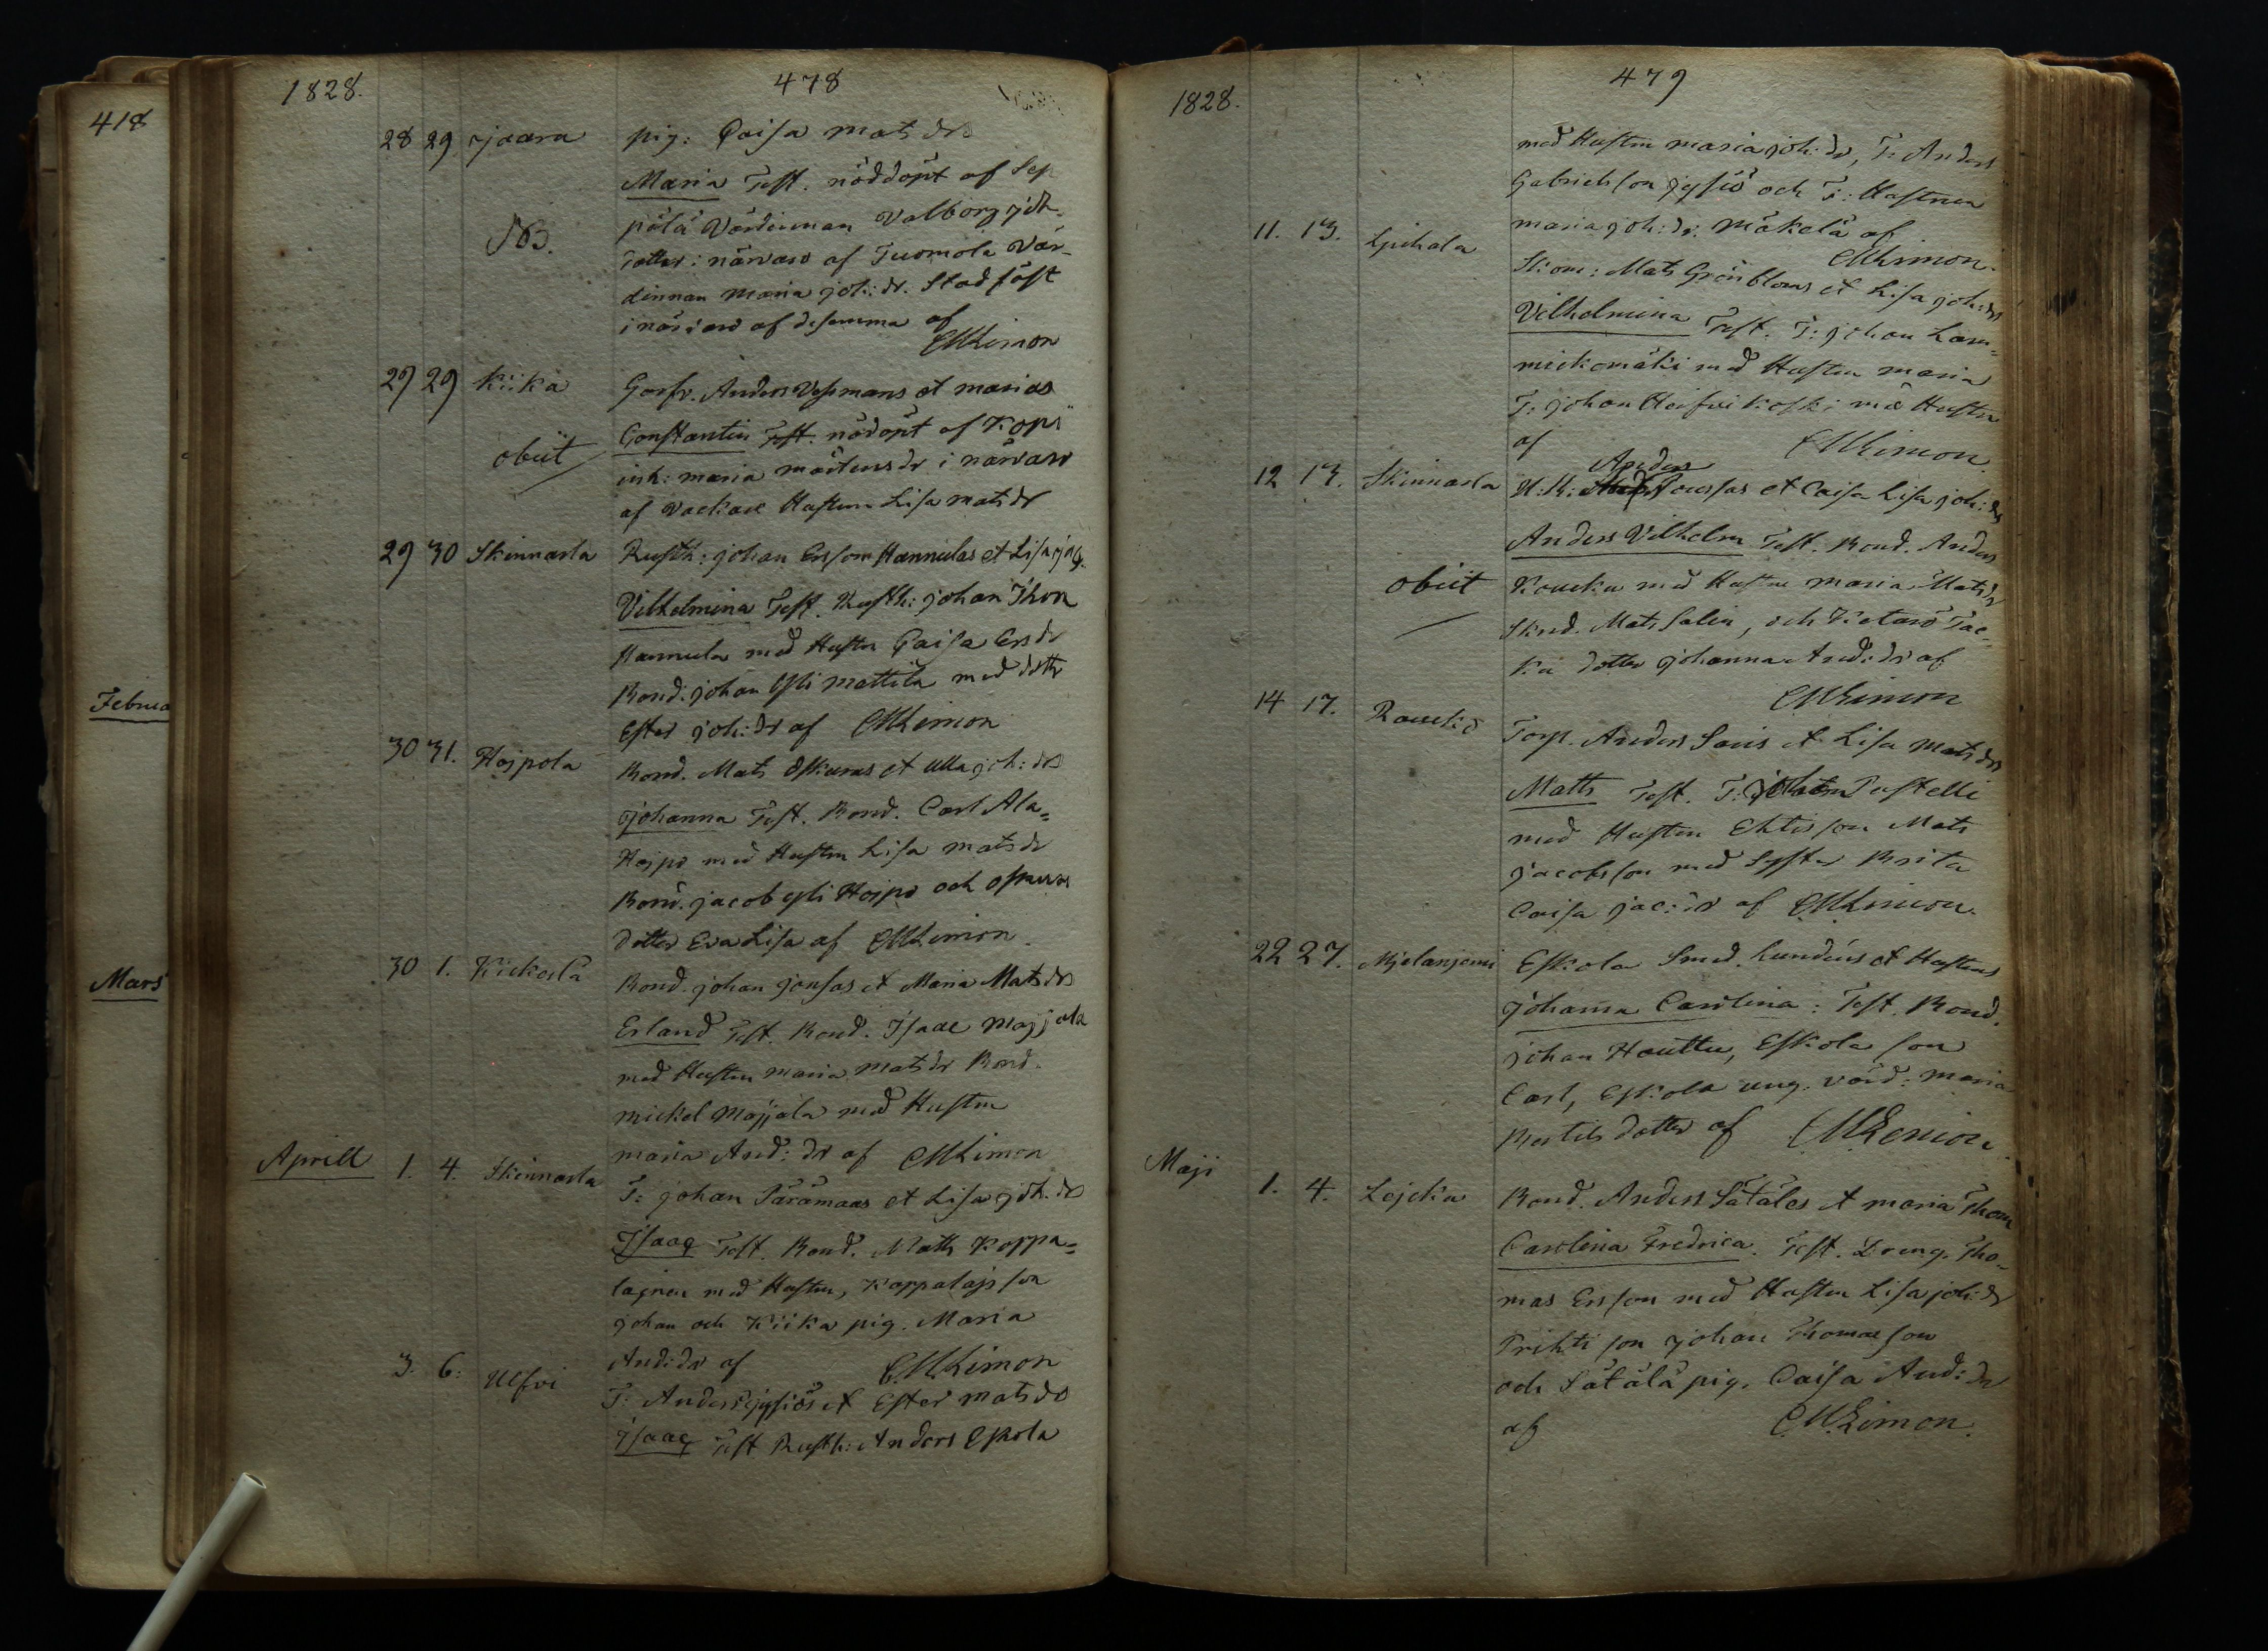 418
Februa
Mars
1828.
478
28 29 Jaara pig: Caisa Mats dr
Maria Test. nöddöpt af Sep
NB. pälä Värdinnan Valborg Joh.
dotter: närvaro af Tuomola Vär-
dinnan Maria Joh: dr. Stadfäst
i närvaro af desamma af
CMLimon
29 29 Kiika Gorfv. Anders Vessmans et Marias
obiit Constantin Test. nödöpt af Kopi
inh: Maria Mårtensdr i närvaro
af Hustrun Lisa Matsdr
29 30 Skinnarla Rusth: Johan Ersson Hannulas et Lisa
Vilhelmina Test. Rusth: Johan Thon
Hannula med Hustru Caisa Ersdr
Bond. Johan Yli Mattila med dottr
Ester Joh: dr af CMLimon
30 31. Hojpola Bond. Mats Oskaras et Ulla Joh: drs
Johanna Test. Bond. Carl Ala=
Hojpo med Hustru Lisa Matsdr
Bond. Jacob Yli Hojpo och
dotter Eva Lisa af CMLimon.
30 1. Kickarla Bond. Johan Jonsas et Maria Matsdrs
Erland Test. Bond. Isaac Majjala
med Hustrun Maria Matsdr Bond.
Mickel Majjala med Hustru
Maria And: dr af CMLimon
Aprill 1. 4. Skinnarla T: Johan Särämaas et Lisa Joh. dr
Isaaq Test. Bond. Matts Koppa=
lajnen med Hustru, Koppalajs son
Johan och Kiika pig. Maria
And: dr af CMLimon
3. 6. Ulfvi T: Anders Jysiös et Ester Matsdr
Isaaq Test Rusth: Anders Eskola
1828.
479
med Hustru Maria Joh: dr, T: Anders
Gabrielsson Jysiö och T: Hustrun
Maria Joh: dr. Mäkelä af
CMLimon.
11. 13. Lyihala Skom: Mats Grönbloms et Lisa Joh: drs
Vilhelmina Test. T: Johan Laru=
mickomäki med Hustru Maria
T: Johan Koski med Hustru
af CMLimon
Anders
12 13. Skinnarla N: K: Poussas et Caisa Lisa Joh: drs
Anders Vilhelm Test. Bond. Anders
obiit Koucku med Hustru Maria Matsdr
Skrd. Mats Salin, och Ketarö Tac=
ku dotter Johanna And: dr af
CMLimon
14 17. Rauckå Torp. Anders Soris et Lisa Matsdrs
Matts Test. T: Johan Pustelli
med Hustru Ehtisson Mats
Jacobsson med Syster Brita
Caisa Jac: dr af CMLimon.
22 27. Mjelanjemi Eskola Smed. Lundéns et Hustrus
Johanna Carolina: Test. Bond.
Johan Houttu, Eskola son
Carl, Eskola ung. värd: Maria
Bertils dotter af CMLimon.
Maji 1. 4. Lojcka Bond. Anders Sätäles et Maria Thom
Carolina Fredrica. Test. Dreng. Tho=
mas Ersson med Hustru Lisa Joh: dr
Prihti son Johan Thomasson
och Sätälä pig. Caisa And: dr
af CMLimon.